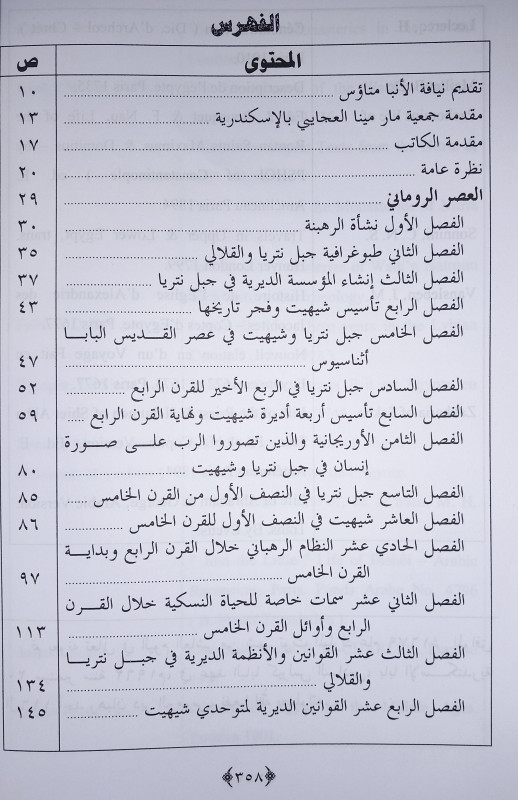 الفهرس
المحتوى ص
تقديم نيافة الأنبا متاؤس ١٠
مقدمة جمعية مار مينا العجايبي بالإسكندرية ١٣
مقدمة الكاتب ١٧
نظرة عامة ٢٠
العصر الروماني ٢٩
الفصل الأول نشأة الرهبنة ٣٠
الفصل الثاني طبوغرافية جبل نتريا والقلالي ٣٥
الفصل الثالث إنشاء المؤسسة الديرية في جبل نتريا ٣٧
الفصل الرابع تأسيس شيهيت وفجر تاريخها ٤٣
الفصل الخامس جبل نتريا وشيهيت في عصر القديس البابا
أثناسيوس ٤٧
الفصل السادس جبل نتريا في الربع الأخير للقرن الرابع ٥٢
الفصل السابع تأسيس أربعة أديرة شيهيت ونهاية القرن الرابع ٥٩
الفصل الثامن الأوريجانية والذين تصوروا الرب على صورة
إنسان في جبل نتريا وشيهيت ٨٠
الفصل التاسع جبل نتريا في النصف الأول من القرن الخامس ٨٥
الفصل العاشر شيهيت في النصف الأول للقرن الخامس ٨٦
الفصل الحادي عشر النظام الرهباني خلال القرن الرابع وبداية
القرن الخامس ٩٧
الفصل الثاني عشر سمات خاصة للحياة النسكية خلال القرن
الرابع وأوائل القرن الخامس ١١٣
الفصل الثالث عشر القوانين والأنظمة الديرية في جبل نتريا
والقلالي ١٣٤
الفصل الرابع عشر القوانين الديرية لمتوحدي شيهيت ١٤٥
﴿٣٥٨﴾